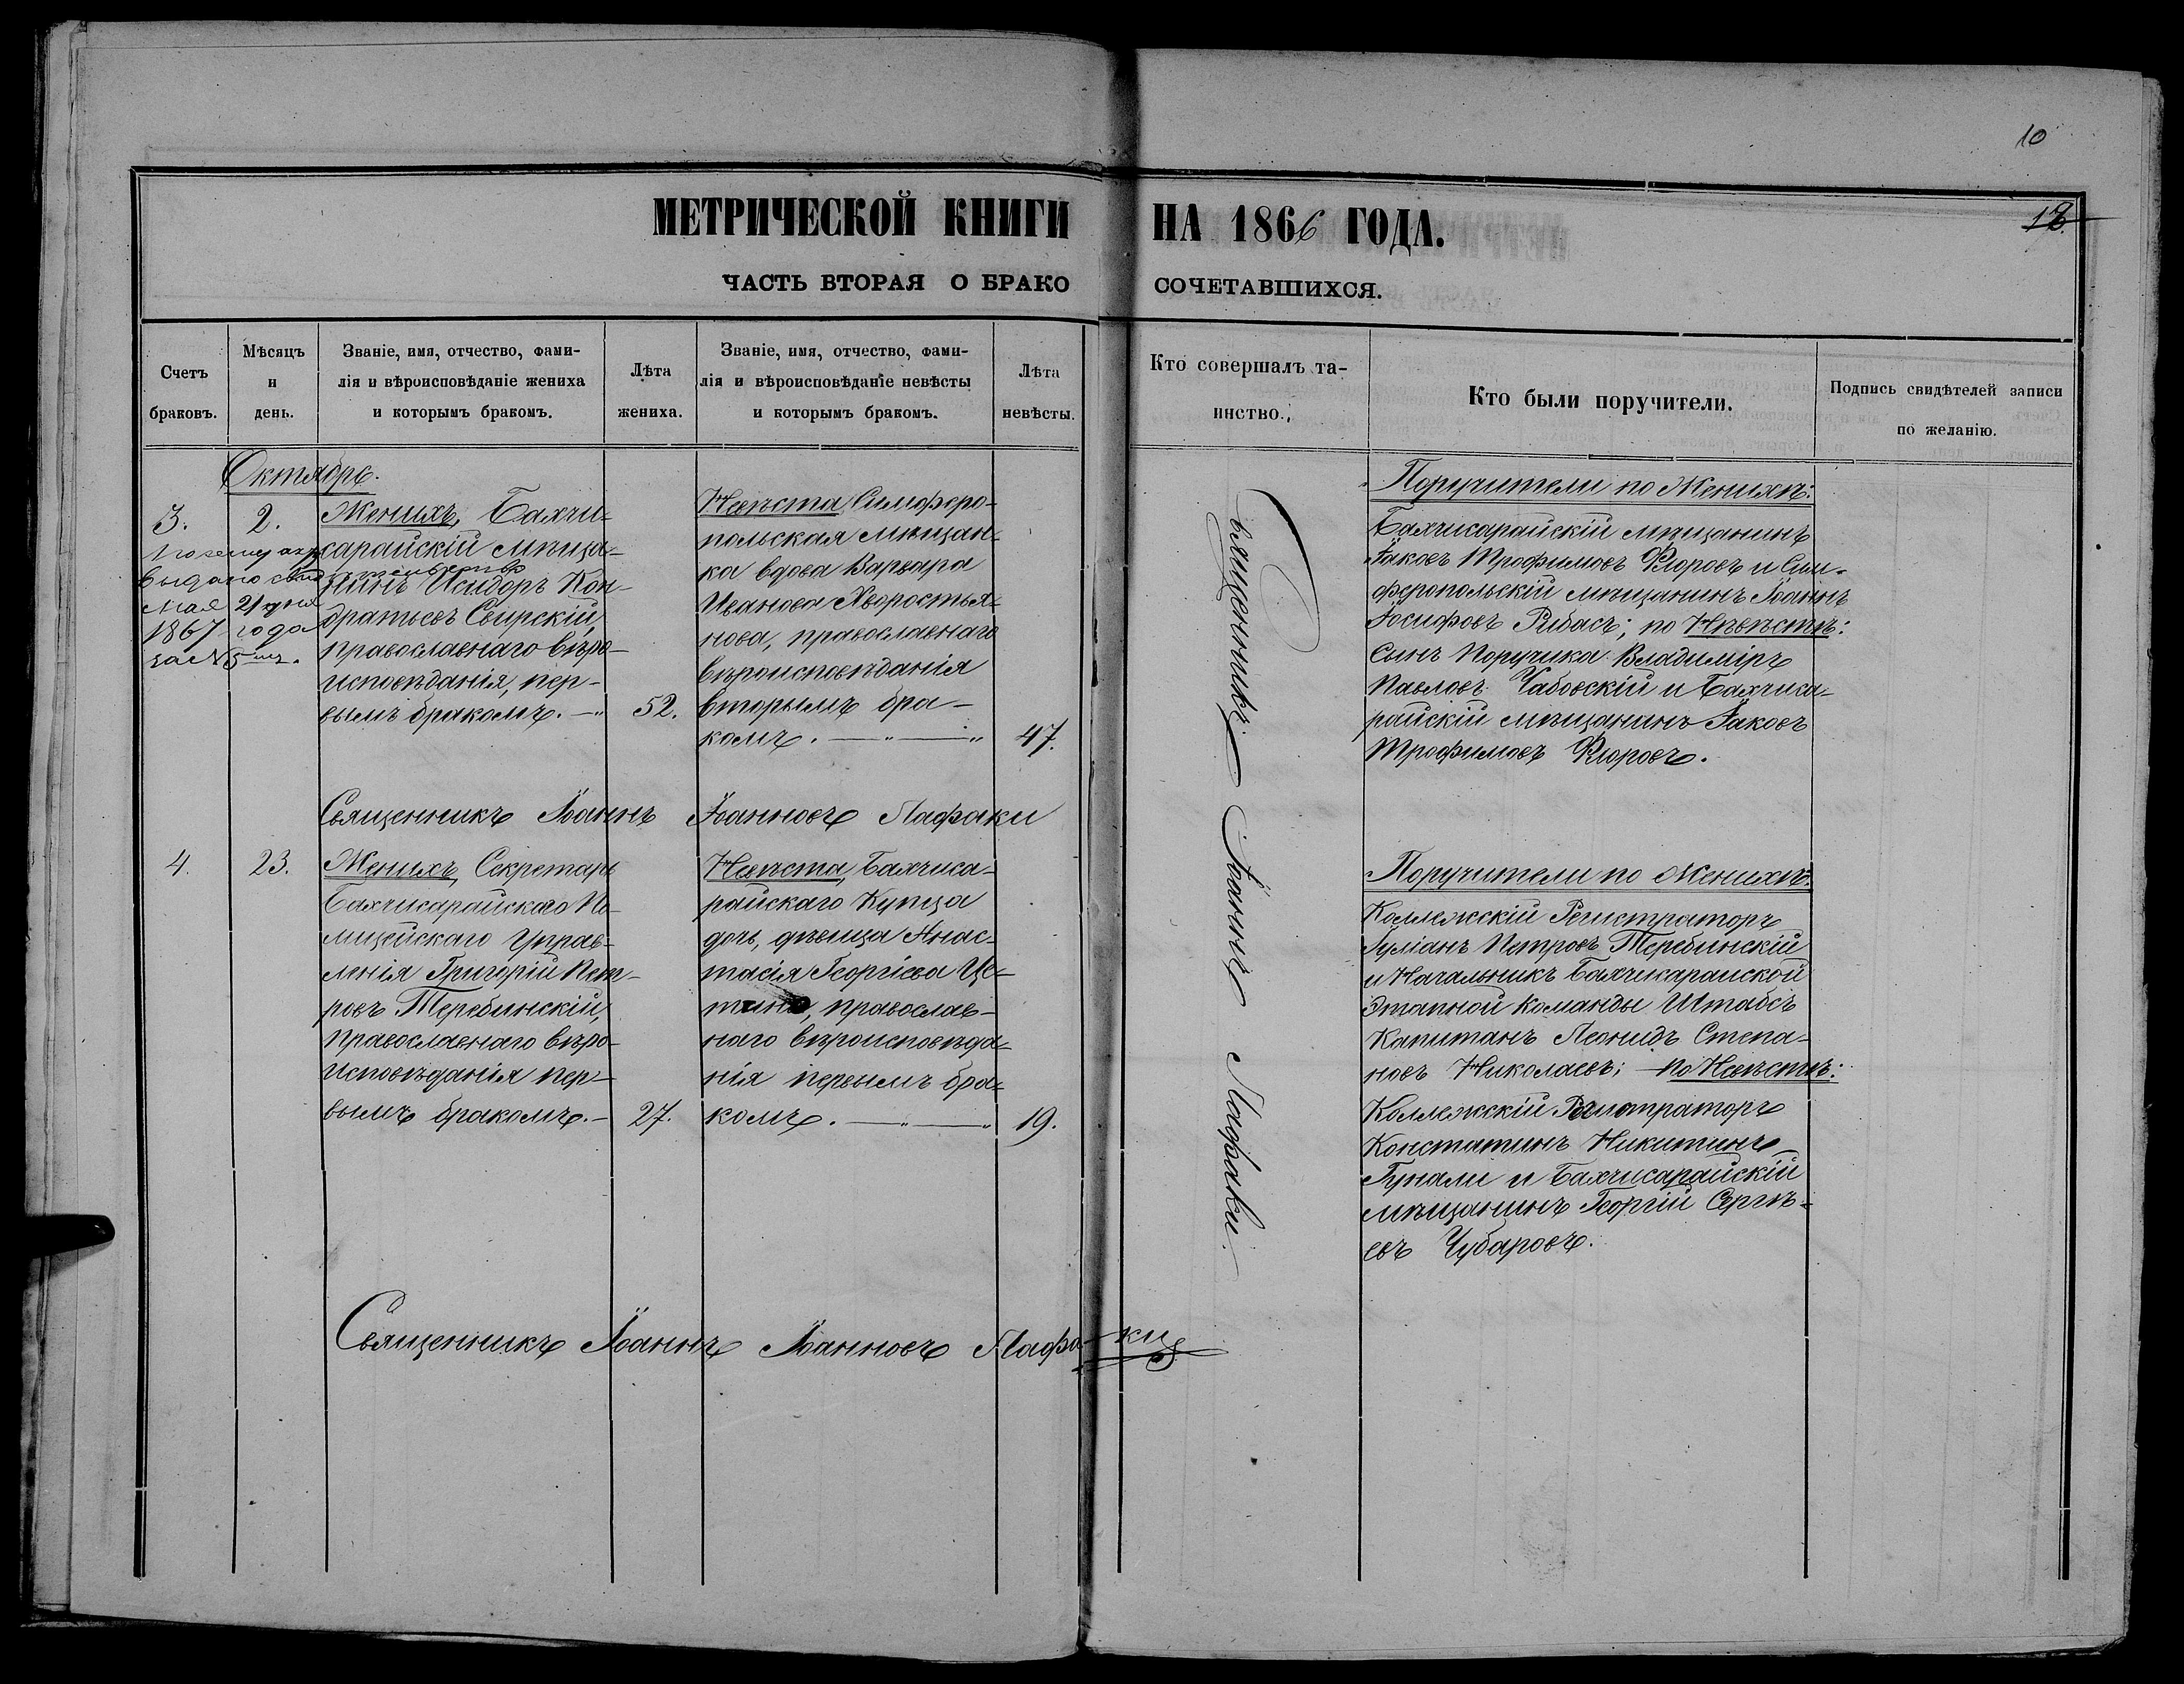 10
МЕТРИЧЕСКОЙ КНИГИ НА 1866 ГОДА.
12.
ЧАСТЬ ВТОРАЯ О БРАКО СОЧЕТАВШИХСЯ.
Счетъ
браковъ.
Мѣсяцъ
и
день.
Званіе, имя, отчество, фами-
лія и вѣроисповѣданіе жениха
и которымъ бракомъ.
Лѣта
жениха.
Званіе, имя, отчество, фами-
лія и вѣроисповѣданіе невѣсты
и которымъ бракомъ.
Лѣта
невѣсты.
Кто совершалъ та-
инство.
Кто были поручители.
Подпись свидѣтелей записи
по желанію.
Октябрь.
3.
2.
По сему акту
выдано свидетельство
мая 21 дня
1867 года
за № 5
Женихъ, Бахчи-
сарайскій мѣща-
нинъ Исидоръ Кон-
дратьевъ Свирскій,
православнаго вѣро-
исповѣданія, пер-
вымъ бракомъ. —"
52.
Невѣста, Симферо-
польская мѣщан-
ка вдова Варвара
Иванова Хворостья-
нова, православнаго
вѣроисповѣданія
вторымъ бра-
комъ. —"—"
47.
Священникъ Іоаннъ Лафаки.
Поручители по Женихѣ:
Бахчисарайскій мѣщанинъ
Іаковъ Трофимовъ Флоровъ и Сим-
феропольскій мѣщанинъ Іоаннъ
Іосифовъ Рибасъ; по Невѣстѣ:
Сынъ Поручика Владиміръ
Павловъ Чабовскій и Бахчиса-
райскій мѣщанинъ Іаковъ
Трофимовъ Флоровъ.
Священникъ Іоаннъ Іоанновъ Лафаки
4.
23.
Женихъ, Секретарь
Бахчисарайскаго По-
лицейскаго Управ-
ленія Григорій Пет-
ровъ Теребинскій,
Православнаго вѣро-
исповѣданія пер-
вымъ бракомъ. —
27.
Невѣста, Бахчиса-
райскаго Купца
дочь, дѣвица Анас-
тасія Георгіева Це-
православ-
наго вѣроисповѣда-
нія первымъ бра-
комъ. —"—"
19.
Поручители по Женихѣ:
Коллежскій Регистраторъ
Іуліанъ Петровъ Теребинскій
и Начальникъ Бахчисарайской
Этапной Команды Штабсъ
Капитанъ Леонидъ Степа-
новъ Николаевъ; — по Невѣстѣ:
Коллежскій Регистраторъ
Констатинъ Никитинъ
Гунали и Бахчисарайскій
мѣщанинъ Георгій Сергѣ-
евъ Чубаровъ.
Священникъ Іоаннъ Іоанновъ Лафаки